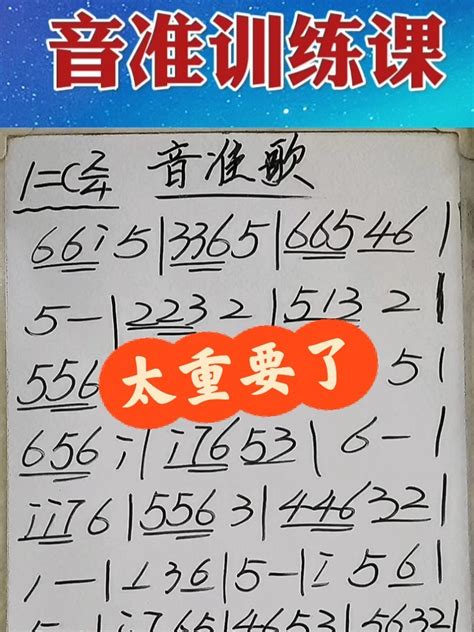 音准训练课
1=C 2/4 音准歌
66i5|3365|66546|
5-|2232|5132|
556 51
太重要了
656i|i7653|6-|
ii76|5563|44632|
1-|136|5-|i56|
i765|4653|5632|